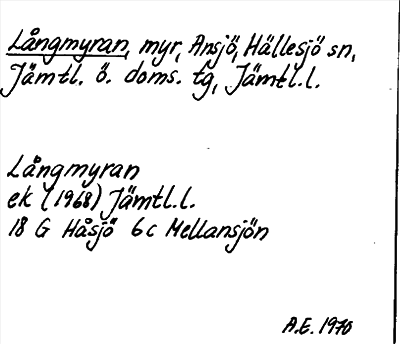 Långmyran, myr, Ansjö, Hällesjö sn,
Jämtl. ö. doms. tg, Jämtl.l.
Långmyran
ek (1968) Jämtl.l.
18 G Håsjö 6c Mellansjön
A.E. 1970